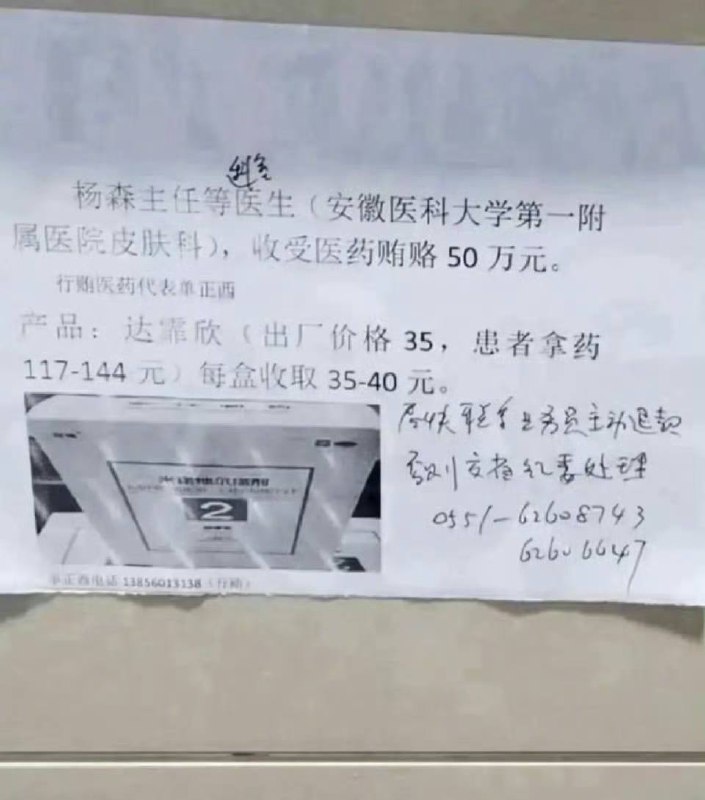 杨森主任等医生（安徽医科大学第一附
属医院皮肤科），收受医药贿赂 50 万元。
行贿医药代表单正西
产品：达霏欣（出厂价格 35，患者拿药
117-144 元）每盒收取 35-40 元。
尽快联系业务员主动退款
否则交指纪委处理
0551-62608743
62606647
米诺地尔搽剂
2
单正西电话 13856013138（行贿）